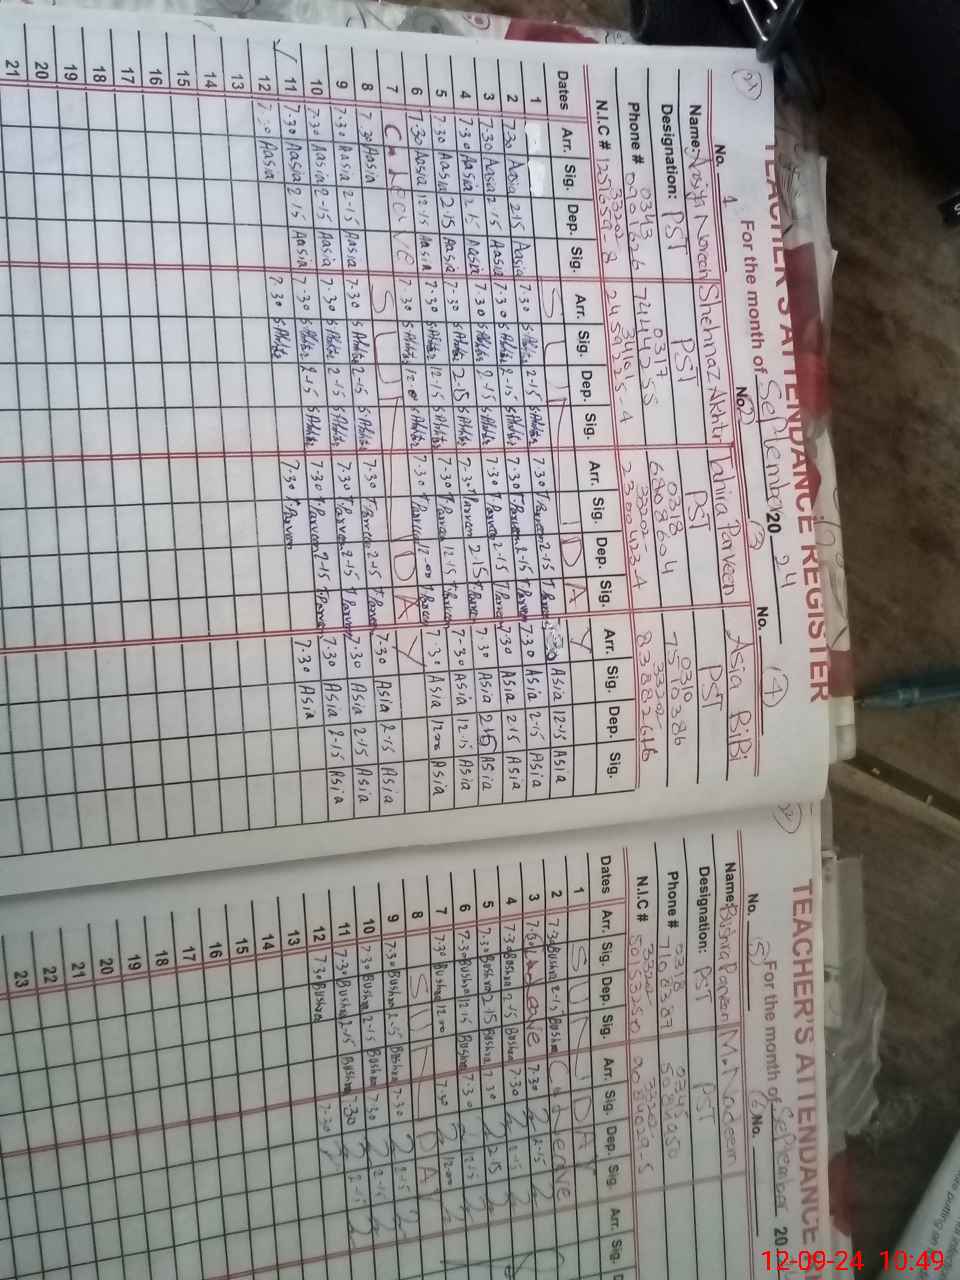 TEACHER'S ATTENDANCE REGISTER
For the month of September 20 24
No. 1 No. (2) (3) No. (4)
Name: Asiya Noreen Shehnaz Akhtar Tahira Parveen Asia BiBi
Designation: PST PST PST PST
Phone # 0343 0317 0318 0310
0901626 7444255 6808604 7510386
N.I.C #
Dates Arr. Sig. Dep. Sig. Arr. Sig. Dep. Sig. Arr. Sig. Dep. Sig. Arr. Sig. Dep. Sig.
1 SUNDAY
2 7.30 Aasia 2.15 Aasia 7.30 S.Akhtar 2.15 S.Akhtar 7.30 T.Parveen 2.15 T.Parveen 7.30 Asia 12.15 Asia
3 7.30 Aasia 2.15 Aasia 7.30 S.Akhtar 2.15 S.Akhtar 7.30 T.Parveen 2.15 T.Parveen 7.30 Asia 2.15 Asia
4 7.30 Aasia 2.15 Aasia 7.30 S.Akhtar 2.15 S.Akhtar 7.30 T.Parveen 2.15 T.Parveen 7.30 Asia 2.15 Asia
5 7.30 Aasia 2.15 Aasia 7.30 S.Akhtar 2.15 S.Akhtar 7.30 T.Parveen 2.15 T.Parveen 7.30 Asia 2.15 Asia
6 7.30 Aasia 12.15 Aasia 7.30 S.Akhtar 12.15 S.Akhtar 7.30 T.Parveen 12.15 T.Parveen 7.30 Asia 12.15 Asia
7 C. Leave 7.30 S.Akhtar 12.00 S.Akhtar 7.30 T.Parveen 12.00 T.Parveen 7.30 Asia 12.00 Asia
8 SUNDAY
9 7.30 Aasia 2.15 Aasia 7.30 S.Akhtar 2.15 S.Akhtar 7.30 T.Parveen 2.15 T.Parveen 7.30 Asia 2.15 Asia
10 7.30 Aasia 2.15 Aasia 7.30 S.Akhtar 2.15 S.Akhtar 7.30 T.Parveen 2.15 T.Parveen 7.30 Asia 2.15 Asia
11 7.30 Aasia 2.15 Aasia 7.30 S.Akhtar 2.15 S.Akhtar 7.30 T.Parveen 2.15 T.Parveen 7.30 Asia 2.15 Asia
12 7.30 Aasia 7.30 S.Akhtar 7.30 T.Parveen 7.30 Asia
13
14
15
16
17
18
19
20
21
TEACHER'S ATTENDANCE
For the month of September 20
No. (5) No.
Name: Bushra M. Nadeem
Designation: PST PST
Phone # 0318 0345
7100387 5084050
N.I.C #
Dates Arr. Sig. Dep. Sig. Arr. Sig. Dep. Sig. Arr. Sig.
1 SUNDAY
2 7.30 Bushra 2.15 Bushra C. Leave
3 Leave 7.30 2.15
4 7.30 Bushra 2.15 Bushra 7.30 2.15
5 7.30 Bushra 2.15 Bushra 7.30 2.15
6 7.30 Bushra 12.15 Bushra 7.30 12.15
7 7.30 Bushra 12.00 7.30 12.00
8 SUNDAY
9 7.30 Bushra 2.15 Bushra 7.30 2.15
10 7.30 Bushra 2.15 Bushra 7.30 2.15
11 7.30 Bushra 2.15 Bushra 7.30 2.15
12 7.30 Bushra 7.30
13
14
15
16
17
18
19
20
21
22
23
12-09-24 10:49